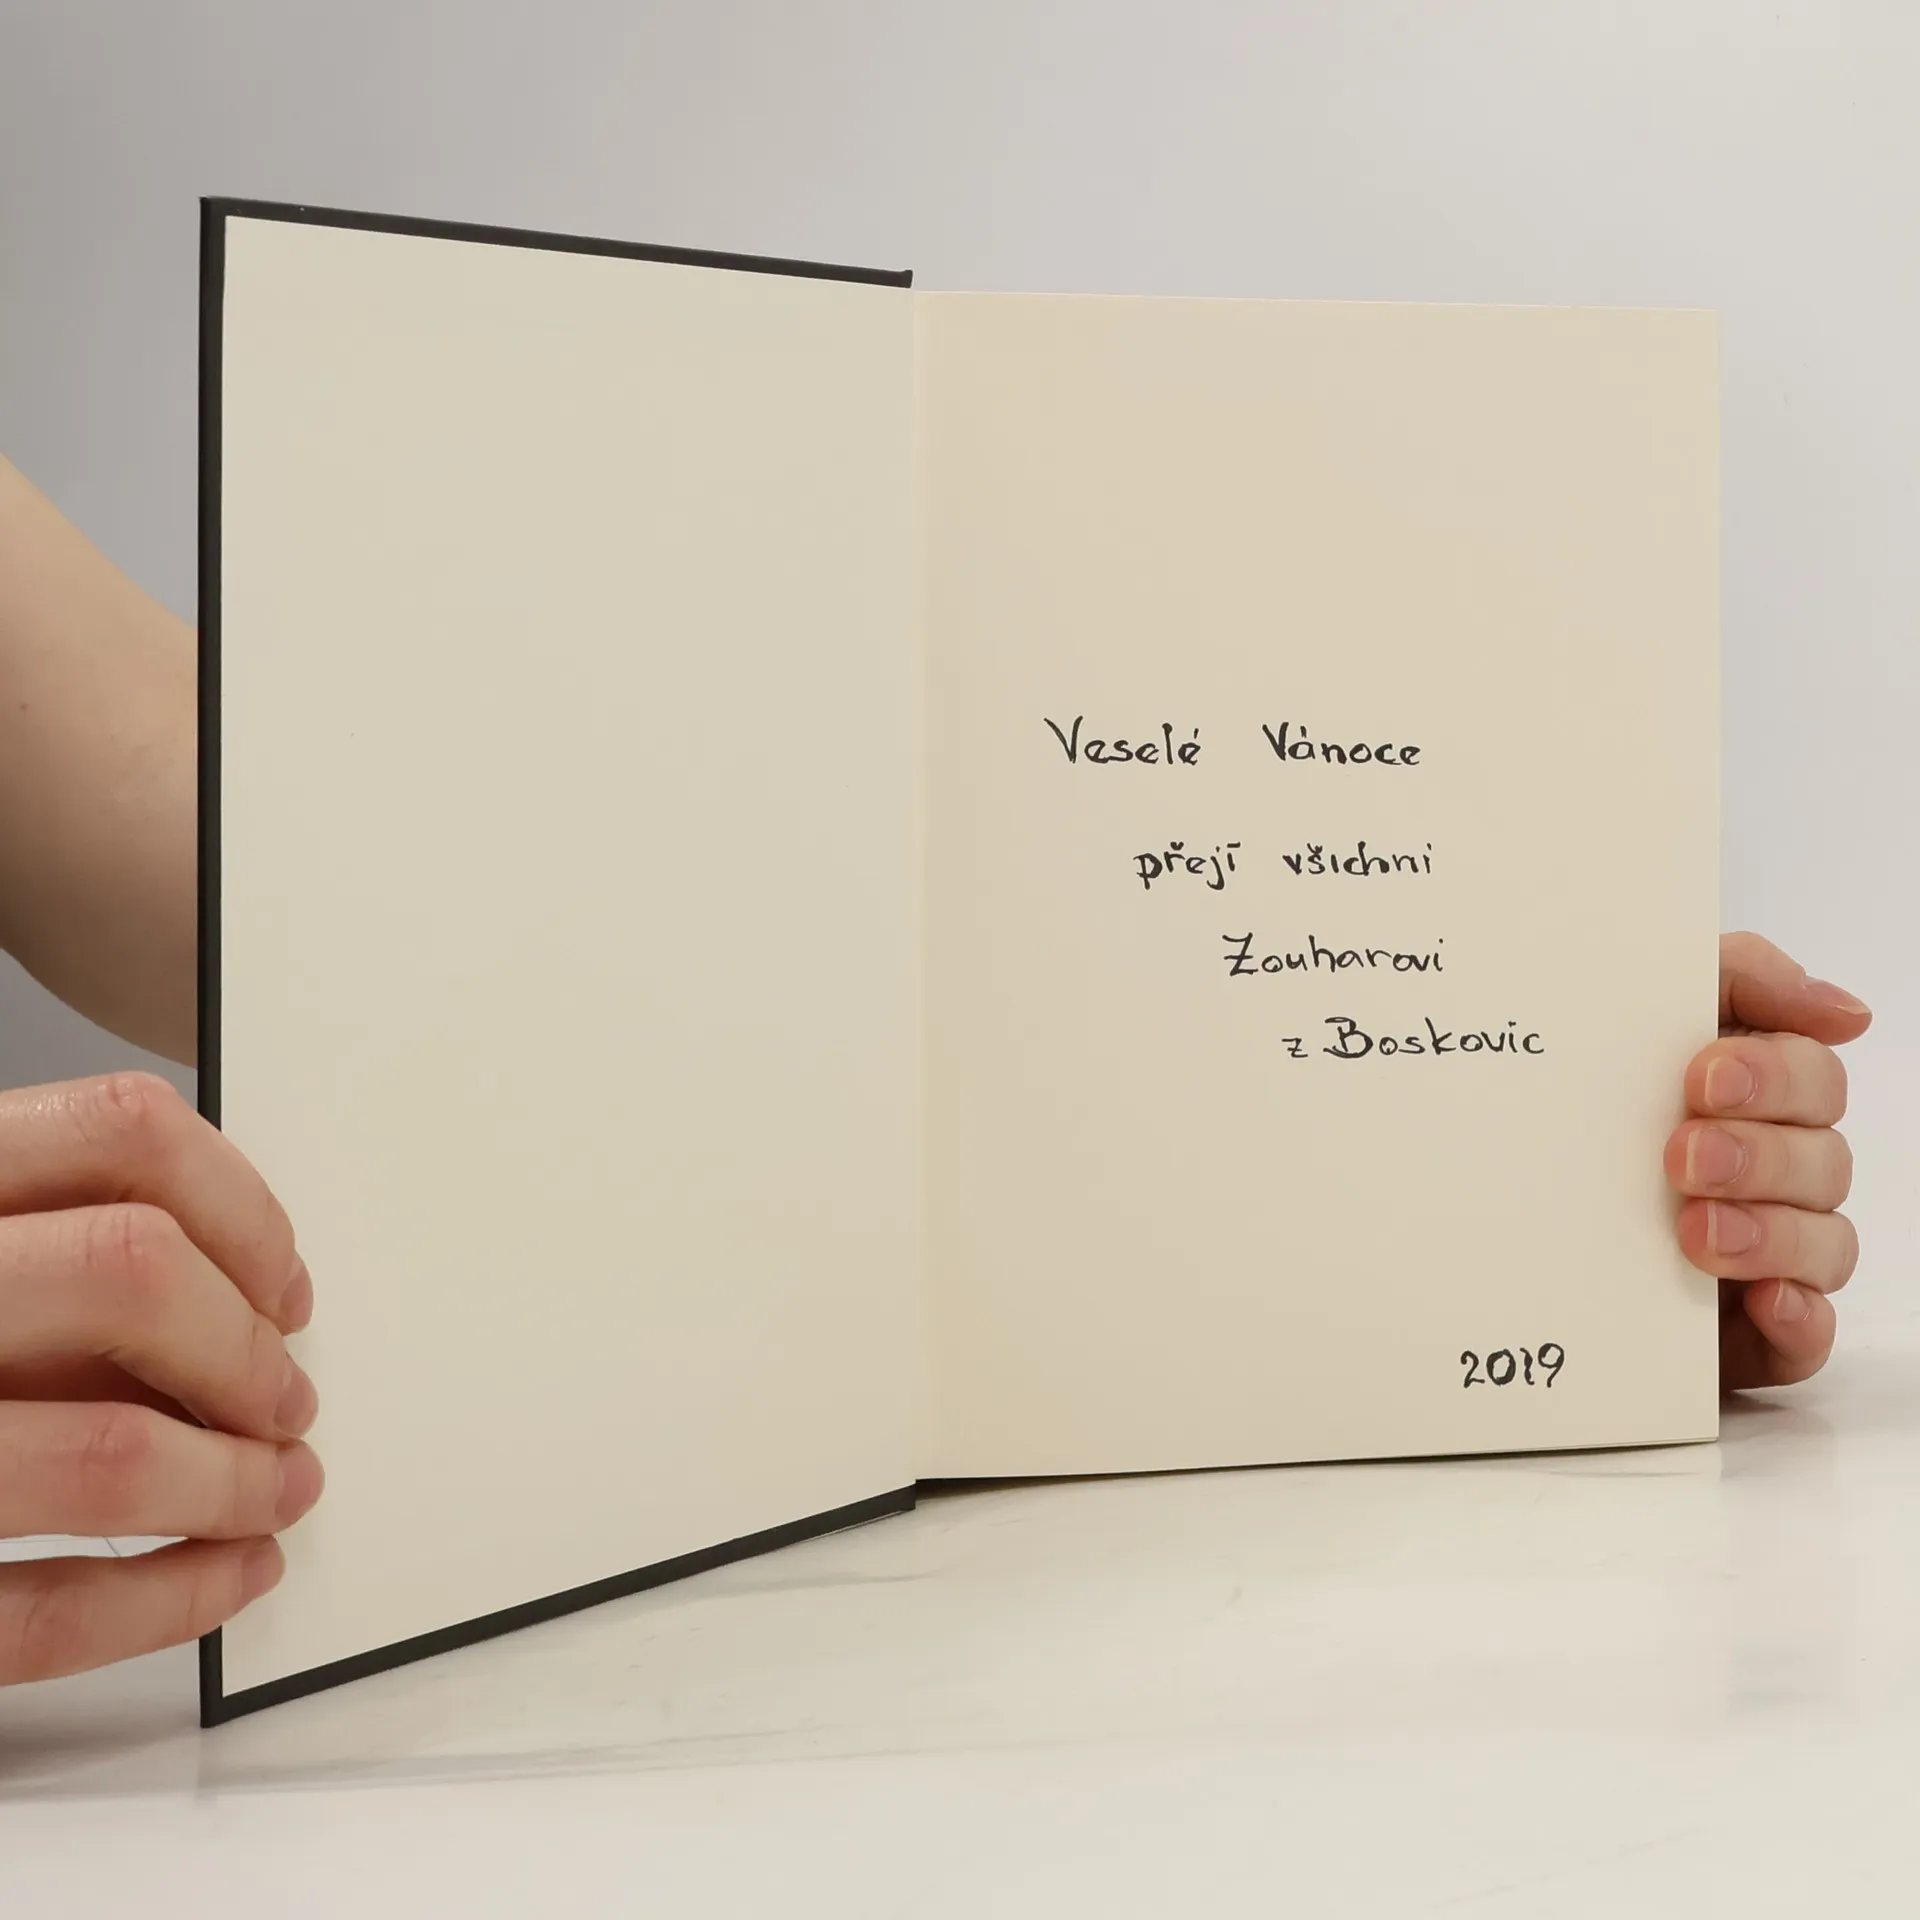 Veselé Vánoce
přejí všichni
Zouharovi
z Boskovic
2019